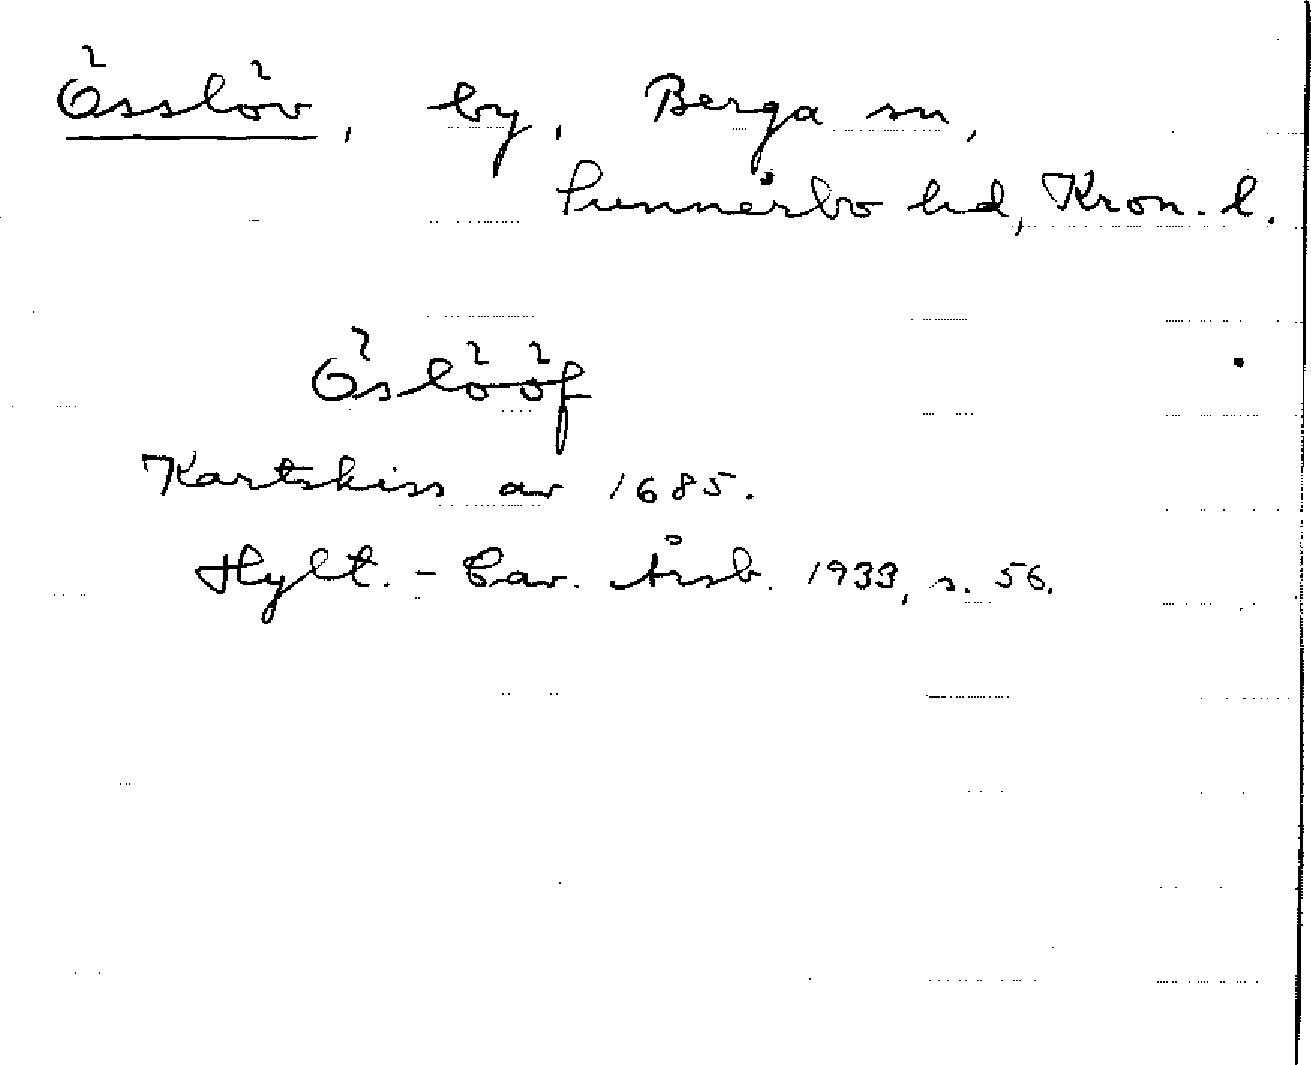 Össlöv, by, Berga sn,
Sunnerbo hd, Kron. l.
Öslööf
Kartskiss av 1685.
Hylt.-Cav. Årsb. 1933, s. 56.